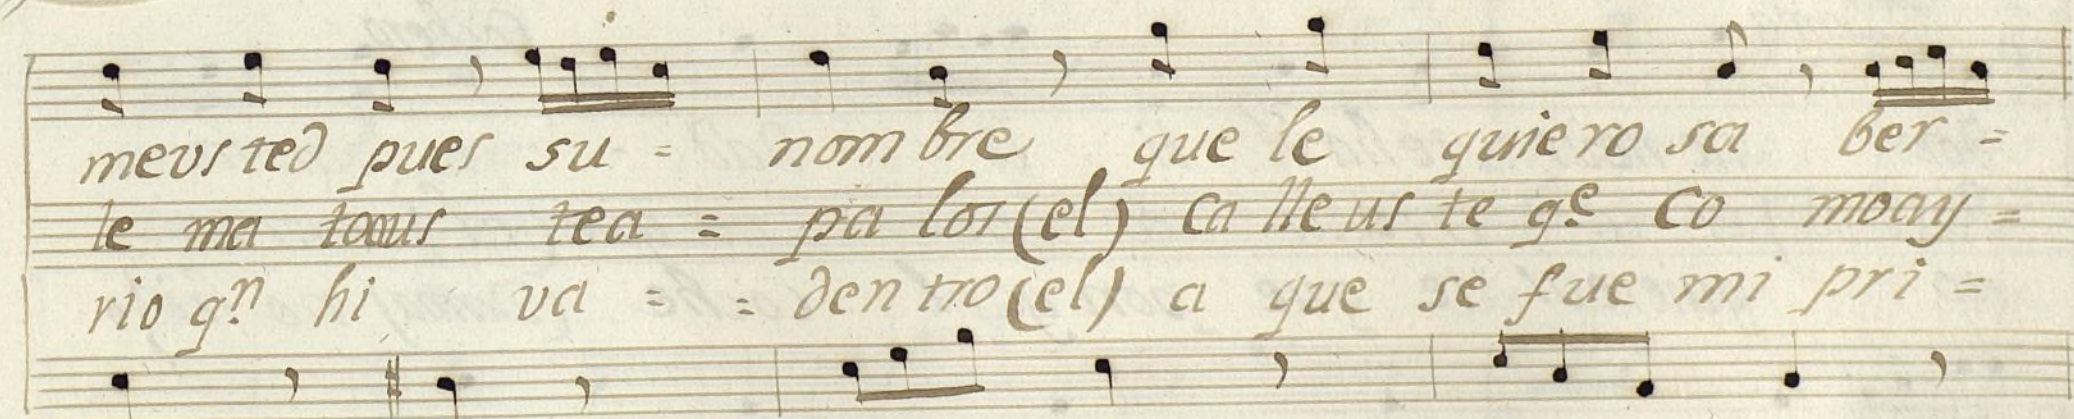 meusted pues su = nombre que le quiero sa ber =
le ma to aus tea = pa los (el) Ca lle us te qe Co moay =
rio qn hi va = = dentro (el) a que se fue mi pri =